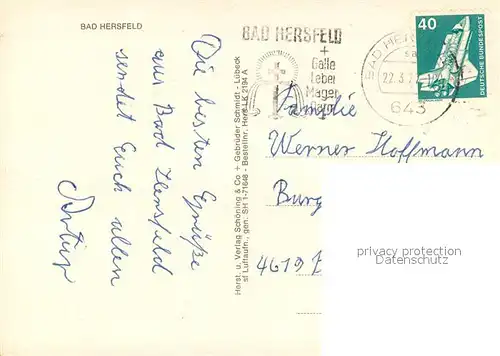 BAD HERSFELD
Die besten Grüße
aus Bad Hersfeld
sendet Euch allen
Herst. u. Verlag Schöning & Co + Gebrüder Schmidt - Lübeck
st Luftaufn., gen. SH 1-71648 - Bestellnr. Hersf LK 2194 A
BAD HERSFELD
+
Galle
Leber
Magen
Darm
BAD HE
22.3.7
643
40
DEUTSCHE BUNDESPOST
Familie
Werner Hoffmann
Burg
4619
privacy protection
copyright by ansichtskarten